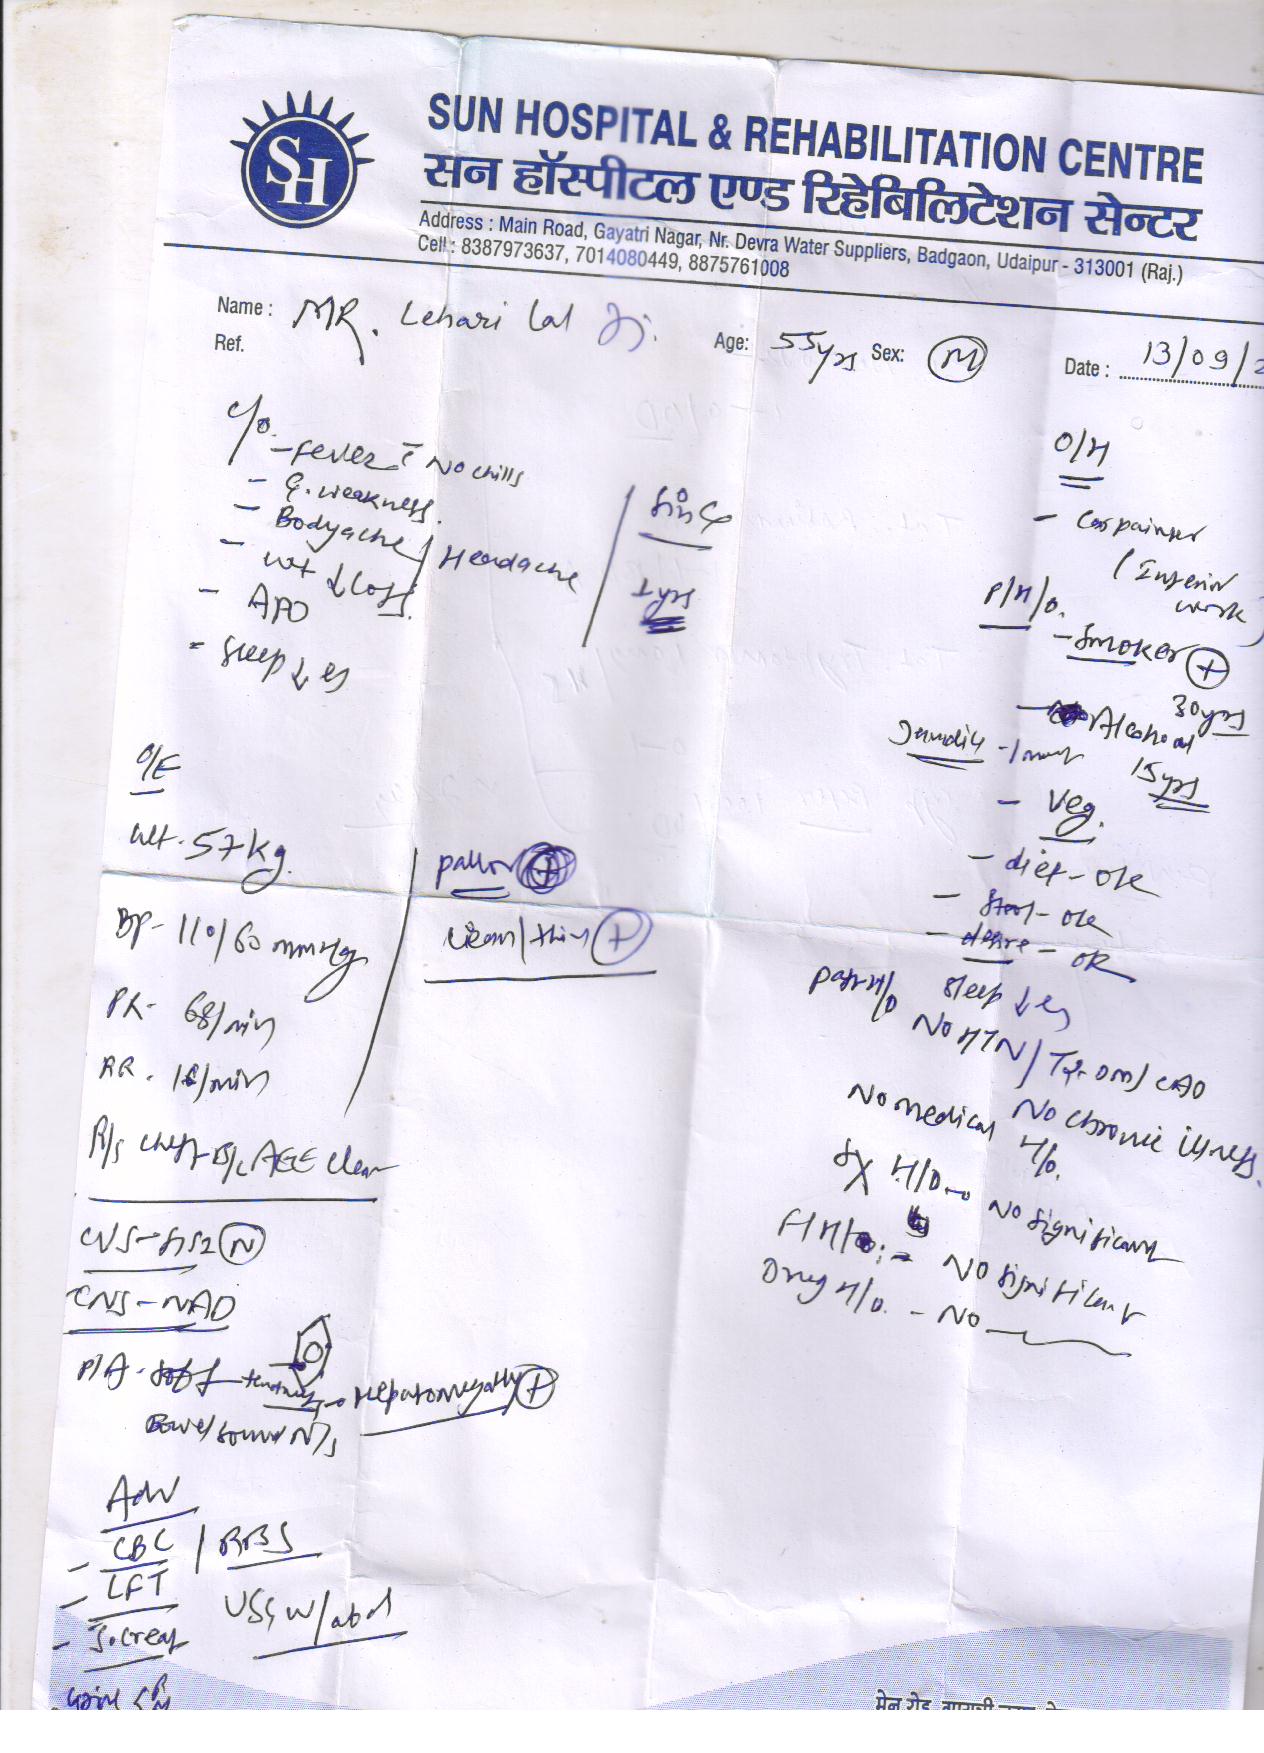 SH
SUN HOSPITAL & REHABILITATION CENTRE
सन हॉस्पीटल एण्ड रिहेबिलिटेशन सेन्टर
Address : Main Road, Gayatri Nagar, Nr. Devra Water Suppliers, Badgaon, Udaipur - 313001 (Raj.)
Cell : 8387973637, 7014080449, 8875761008
Name : MR. Lehari Lal Ji.
Ref.
Age: 55yrs Sex: M
Date : 13/09/2
C/o.
- Fever c̄ No chills
- G. weakness.
- Bodyache / Headache
- wt ↓ Loss.
- APO
- Sleep ↓ es
Since
1 yrs
O/H
- Carpainter
(Interior work)
P/H/o.
- Smoker +
30yrs
- Alcohol
15yrs
Jaundice -
- Veg.
- diet - ok
- Stool - ok
- desire - ok
Sleep ↓ es
Past H/o
No HTN / T2-DM / CAD
No chronic illness.
No medical H/o.
Sx H/o - No significant
F/H/o :- No significant
Drug H/o. - No
O/E
Wt. 57kg.
BP - 110/60 mmHg
PR - 68/min
RR - 18/min
R/s chest - B/L AEE clear
CVS - S1S2 N
CNS - NAD
P/A - soft - tenderness Hepatomegally +
Bowel sound N/s
pallor +
lean/thin +
Adv
- CBC / RBS
- LFT
- S. creat
USG W/abd
मेन रोड, गायत्री नगर,